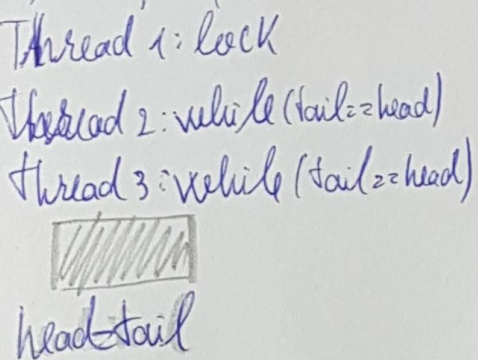 Thread 1: lock
thread 2: while (tail==head)
thread 3: while (tail==head)
head=tail